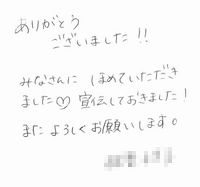 ありがとう
ございました!!
みなさんに ほめていただき
ました♡ 宣伝しておきました!
またよろしくお願いします。